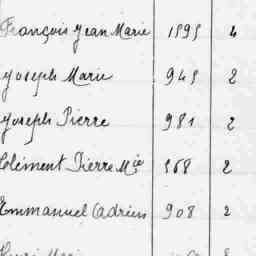 François Jean Marie 1595 4
Joseph Marie 945 2
Joseph Pierre 981 2
Clément Pierre Mie 568 2
Emmanuel Cadrien 908 2